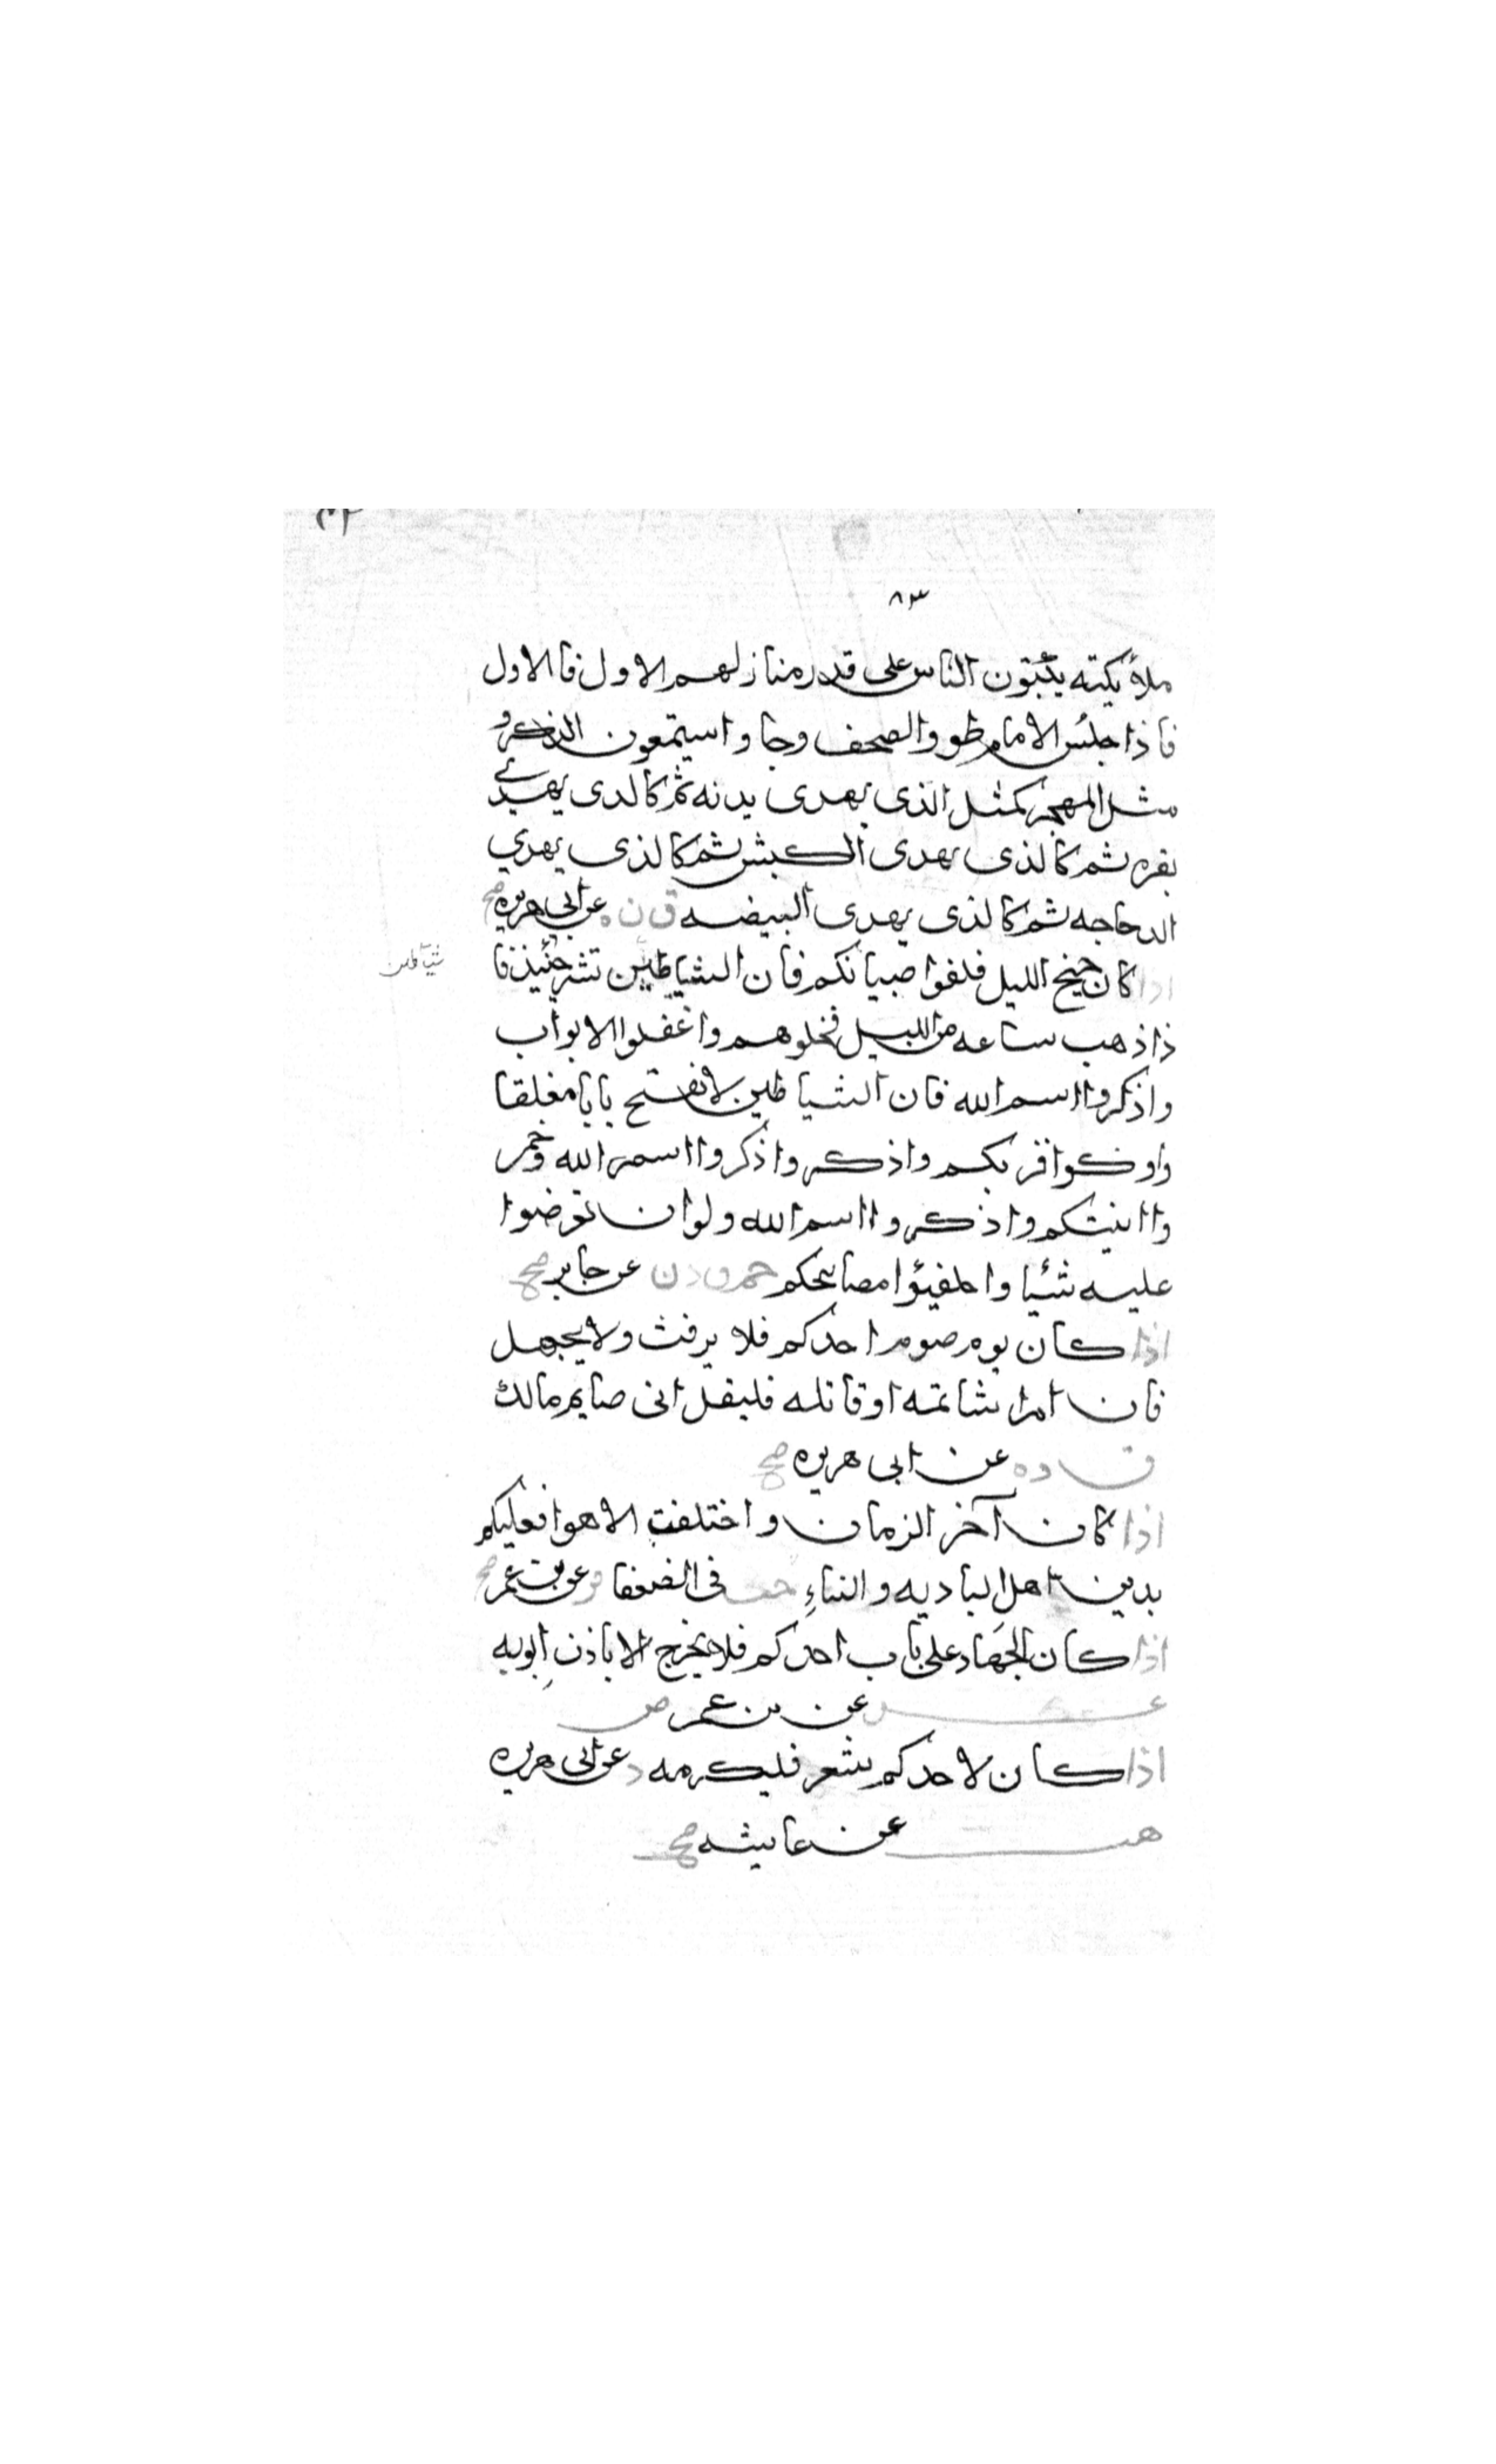 ٨٣
ملائكته يكتبون الناس على قدر منازلهم الاول فالاول
فاذا جلس الامام طووا الصحف وجاوا يستمعون الذكر و
مثل المهجر كمثل الذى يهدى بدنه ثم كالدى يهدي
بقره ثم كالذى يهدى الكبش ثم كالذى يهدي
الدجاجه ثم كالذى يهدى البيضه ق ن ه عن ابي هريره صح
اذا كان جنح الليل فكفوا صبيانكم فان الشياطين تنشر حينئذ فا
شياطين
ذا ذهب ساعه من الليل فخلوهم واغفلوا الابواب
واذكروا اسم الله فان الشياطين لا تفتح بابا مغلقا
واوكوا قربكم واذكر واذكروا اسم الله وخمر
وا انيتكم واذكروا اسم الله ولو ان تعرضوا
عليه شئيا واطفئوا مصابحكم حم ق د ن عن جابر صح
اذا كان يوم صوم احدكم فلا يرفث ولا يجهل
فان امرا شاتمه او قاتله فليقل انى صايم مالك
ق د ه عن ابى هريره صح
اذا كان آخر الزمان واختلفت الاهوا فعليكم
بدين اهل البا ديه والنساءِ حب فى الضعفا فر عن بن عمر صح
اذا كان الجهاد على باب احدكم فلا يخرج الا باذن ابويه
عد عن بن عمر ض
اذا كان لاحدكم شعر فليكرمه د عن ابى هريره
هب عن عايشه صح